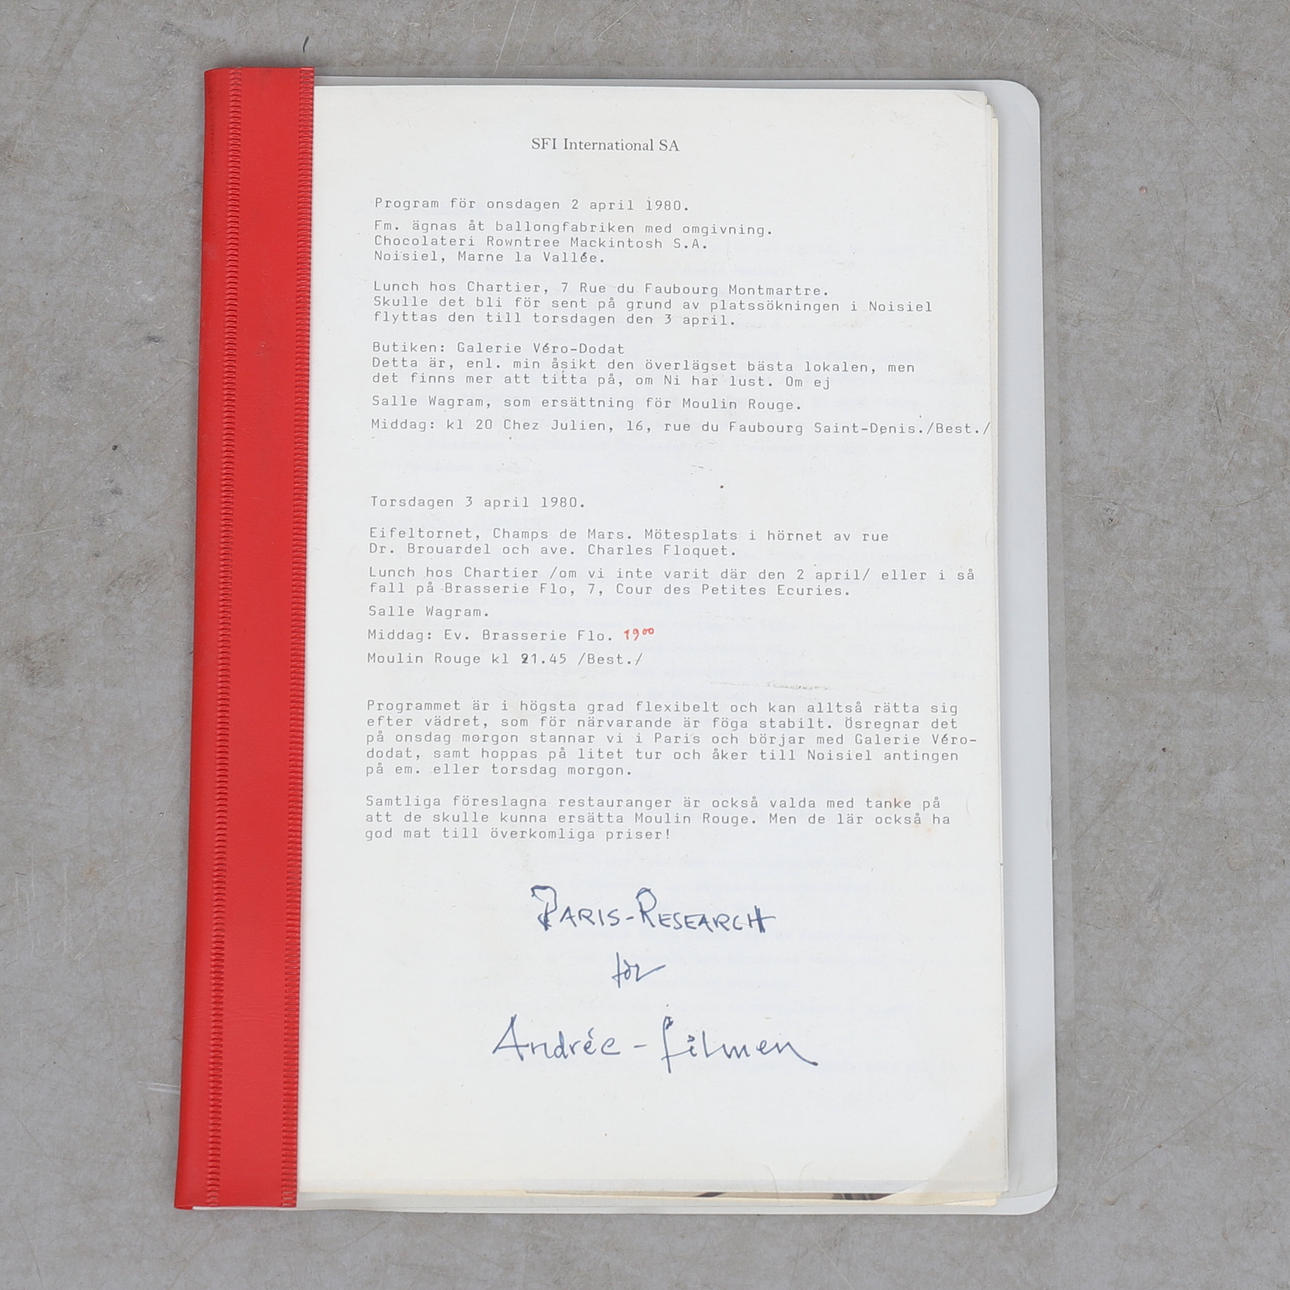 SFI International SA
Program för onsdagen 2 april 1980.
Fm. ägnas åt ballongfabriken med omgivning.
Chocolateri Rowntree Mackintosh S.A.
Noisiel, Marne la Vallée.
Lunch hos Chartier, 7 Rue du Faubourg Montmartre.
Skulle det bli för sent på grund av platssökningen i Noisiel
flyttas den till torsdagen den 3 april.
Butiken: Galerie Véro-Dodat
Detta är, enl. min åsikt den överlägset bästa lokalen, men
det finns mer att titta på, om Ni har lust. Om ej
Salle Wagram, som ersättning för Moulin Rouge.
Middag: kl 20 Chez Julien, 16, rue du Faubourg Saint-Denis./Best./
Torsdagen 3 april 1980.
Eifeltornet, Champs de Mars. Mötesplats i hörnet av rue
Dr. Brouardel och ave. Charles Floquet.
Lunch hos Chartier /om vi inte varit där den 2 april/ eller i så
fall på Brasserie Flo, 7, Cour des Petites Ecuries.
Salle Wagram.
Middag: Ev. Brasserie Flo. 19⁰⁰
Moulin Rouge kl 21.45 /Best./
Programmet är i högsta grad flexibelt och kan alltså rätta sig
efter vädret, som för närvarande är föga stabilt. Ösregnar det
på onsdag morgon stannar vi i Paris och börjar med Galerie Véro-
dodat, samt hoppas på litet tur och åker till Noisiel antingen
på em. eller torsdag morgon.
Samtliga föreslagna restauranger är också valda med tanke på
att de skulle kunna ersätta Moulin Rouge. Men de lär också ha
god mat till överkomliga priser!
PARIS-RESEARCH
för
Andrée-filmen